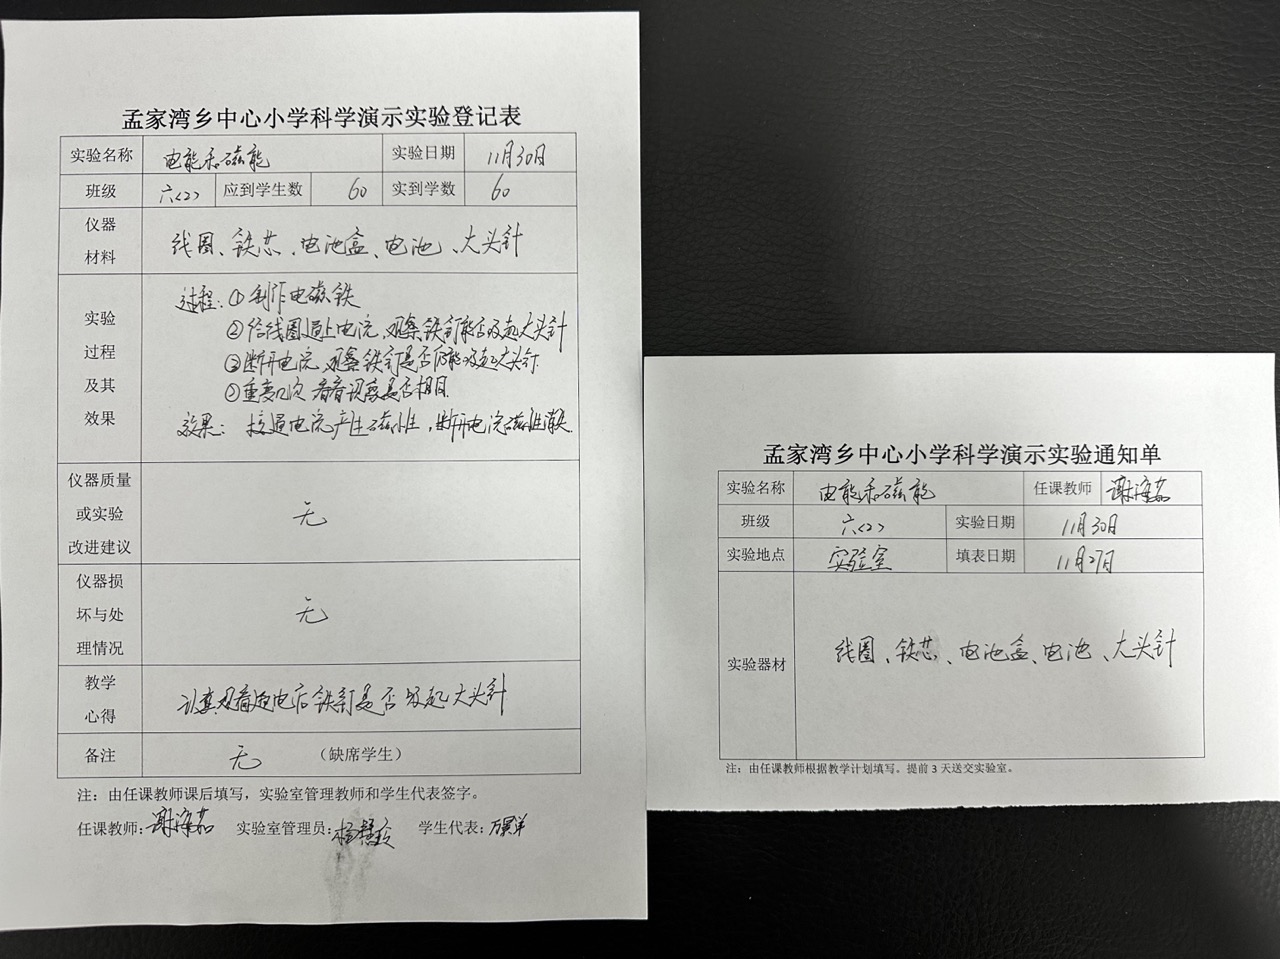 孟家湾乡中心小学科学演示实验登记表
实验名称 电能和磁能 实验日期 11月30日
班级 六(2) 应到学生数 60 实到学数 60
仪器
材料
线圈、铁芯、电池盒、电池、大头针
实验
过程
及其
效果
过程:①制作电磁铁
②给线圈通上电流,观察铁钉能否吸起大头针
③断开电流,观察铁钉是否仍能吸起大头针.
②重复几次 看看现象是否相同.
效果: 接通电流产生磁性,断开电流磁性消失.
仪器质量
或实验
改进建议
无
仪器损
坏与处
理情况
无
教学
心得
认真观看通电后铁钉是否吸起大头针
备注 无 (缺席学生)
注:由任课教师课后填写,实验室管理教师和学生代表签字。
任课教师:谢海茹 实验室管理员: 学生代表:
孟家湾乡中心小学科学演示实验通知单
实验名称 电能和磁能 任课教师 谢海茹
班级 六(2) 实验日期 11月30日
实验地点 实验室 填表日期 11月27日
实验器材 线圈、铁芯、电池盒、电池、大头针
注:由任课教师根据教学计划填写。提前 3 天送交实验室。